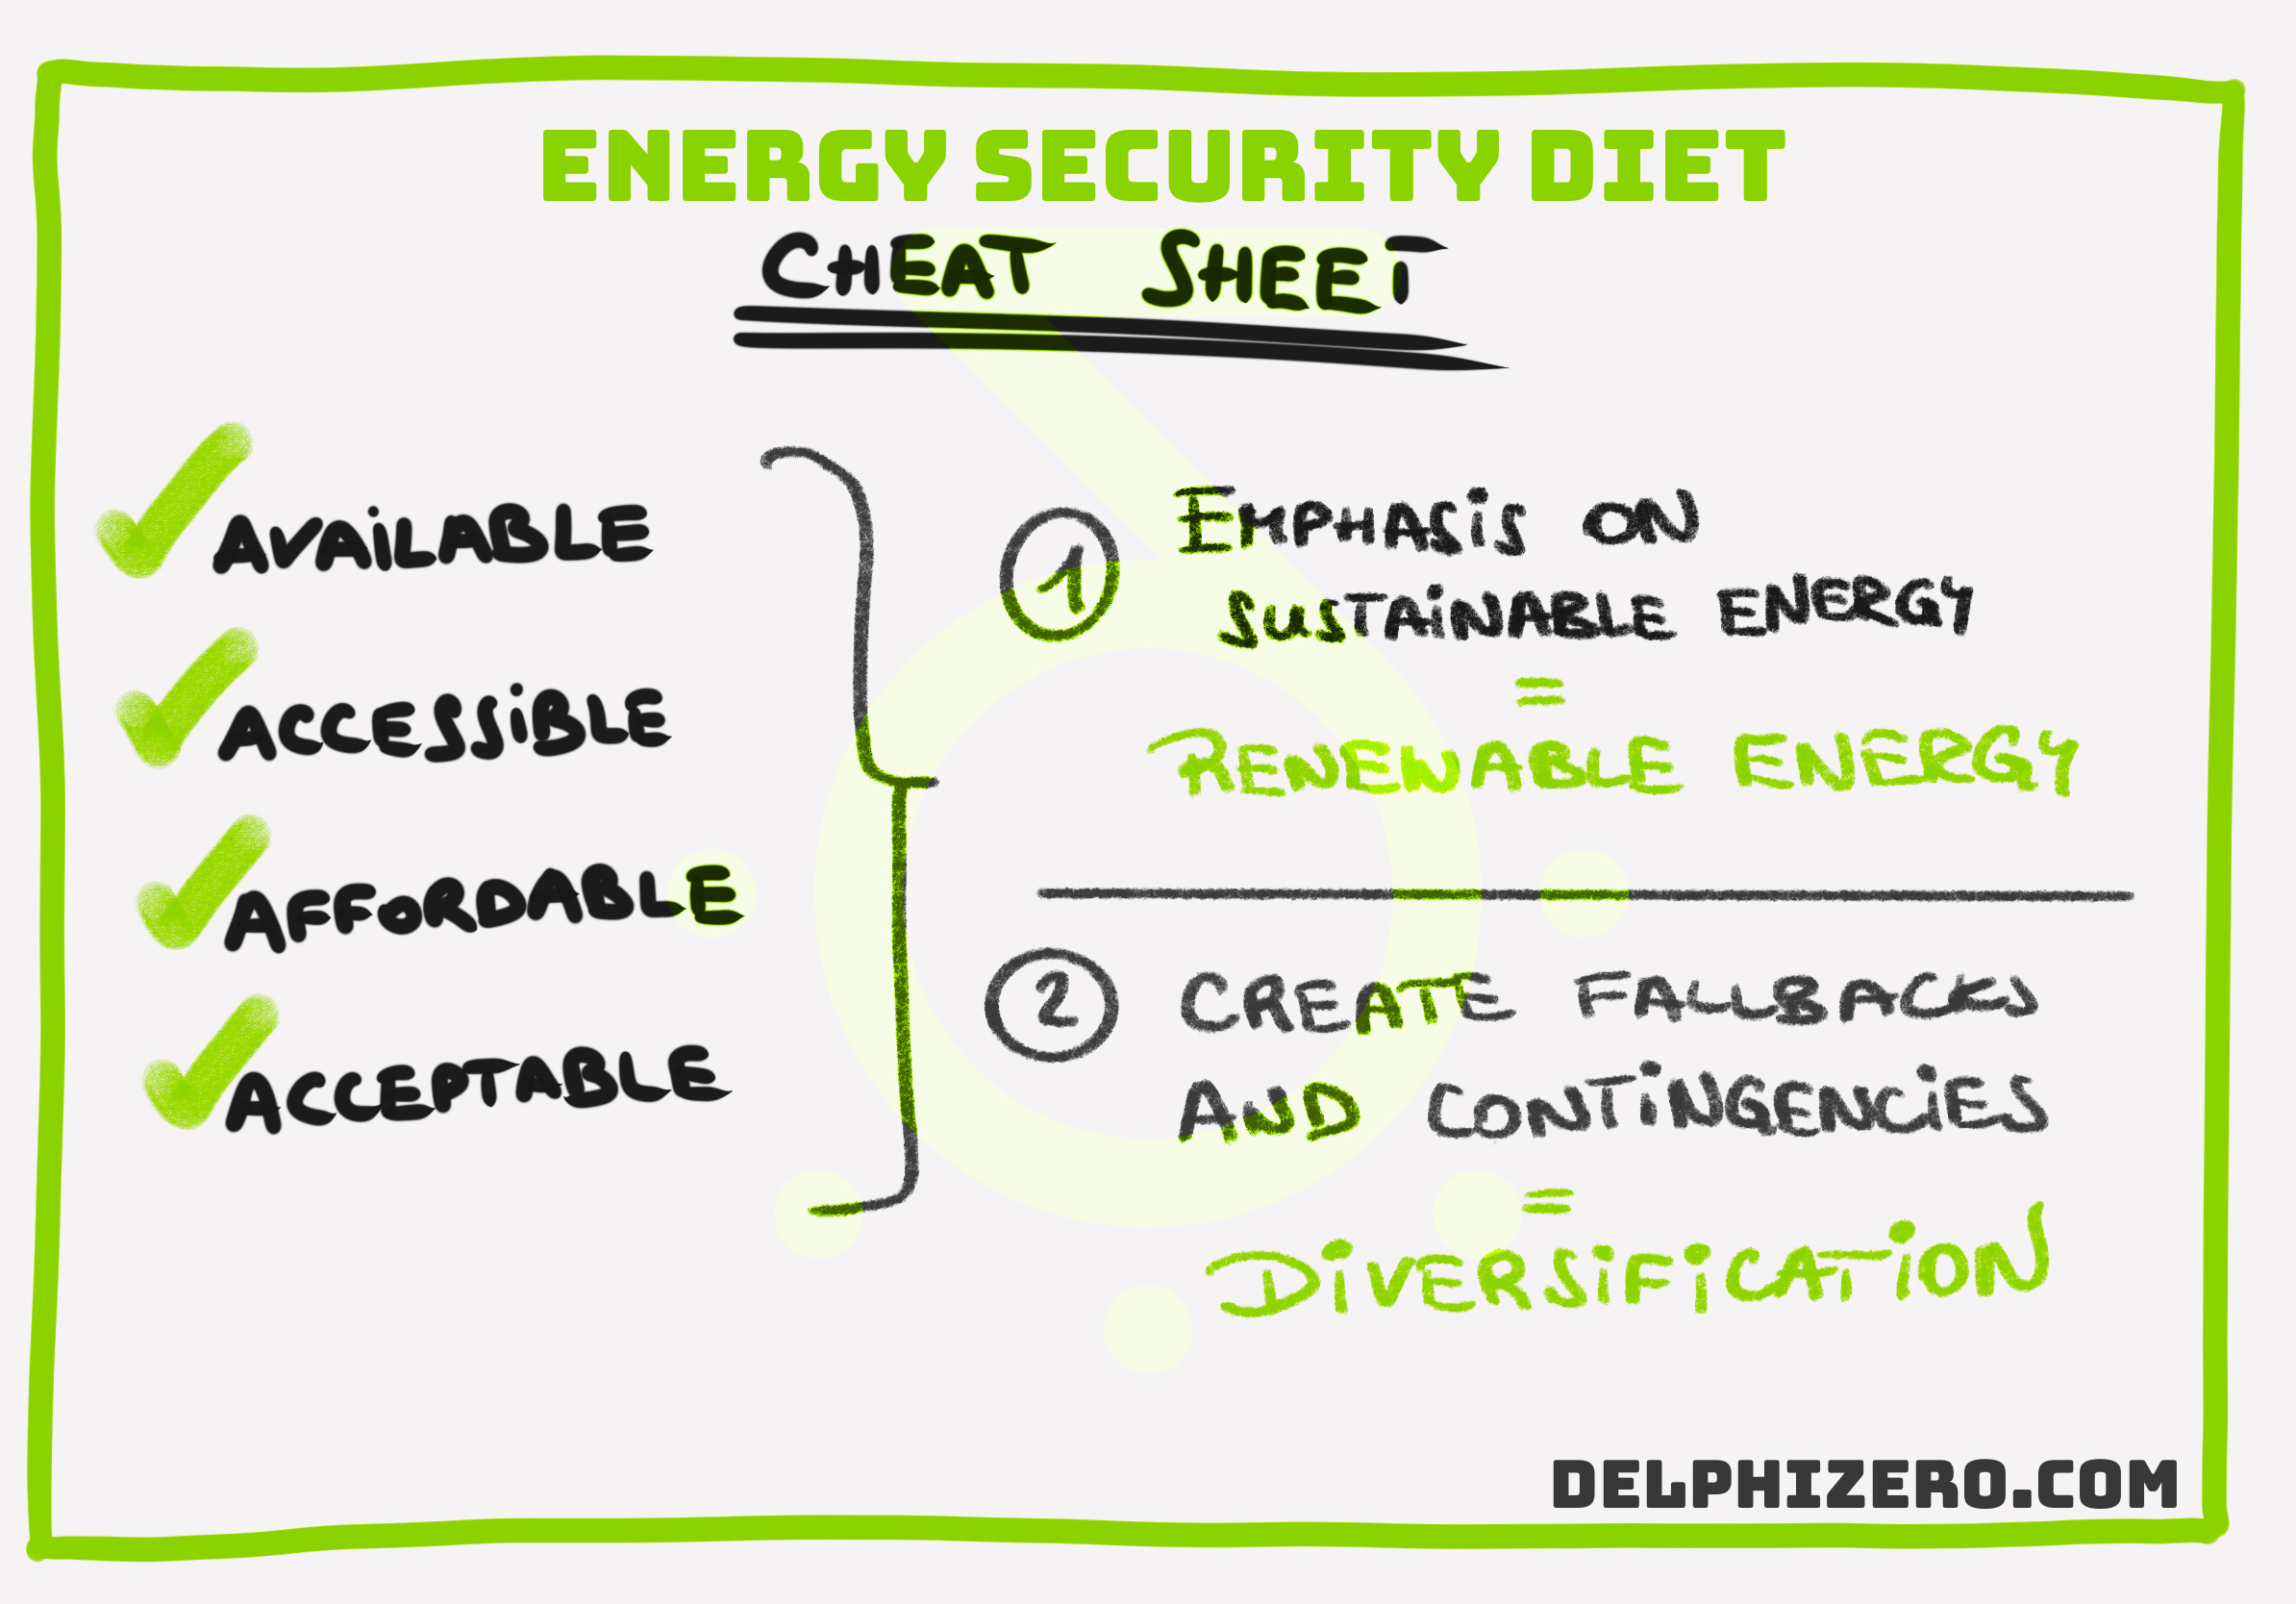 ENERGY SECURITY DIET
CHEAT SHEET
AVAILABLE
ACCESSIBLE
AFFORDABLE
ACCEPTABLE
1 EMPHASIS ON
SUSTAINABLE ENERGY
=
RENEWABLE ENERGY
2 CREATE FALLBACKS
AND CONTINGENCIES
=
DIVERSIFICATION
DELPHIZERO.COM